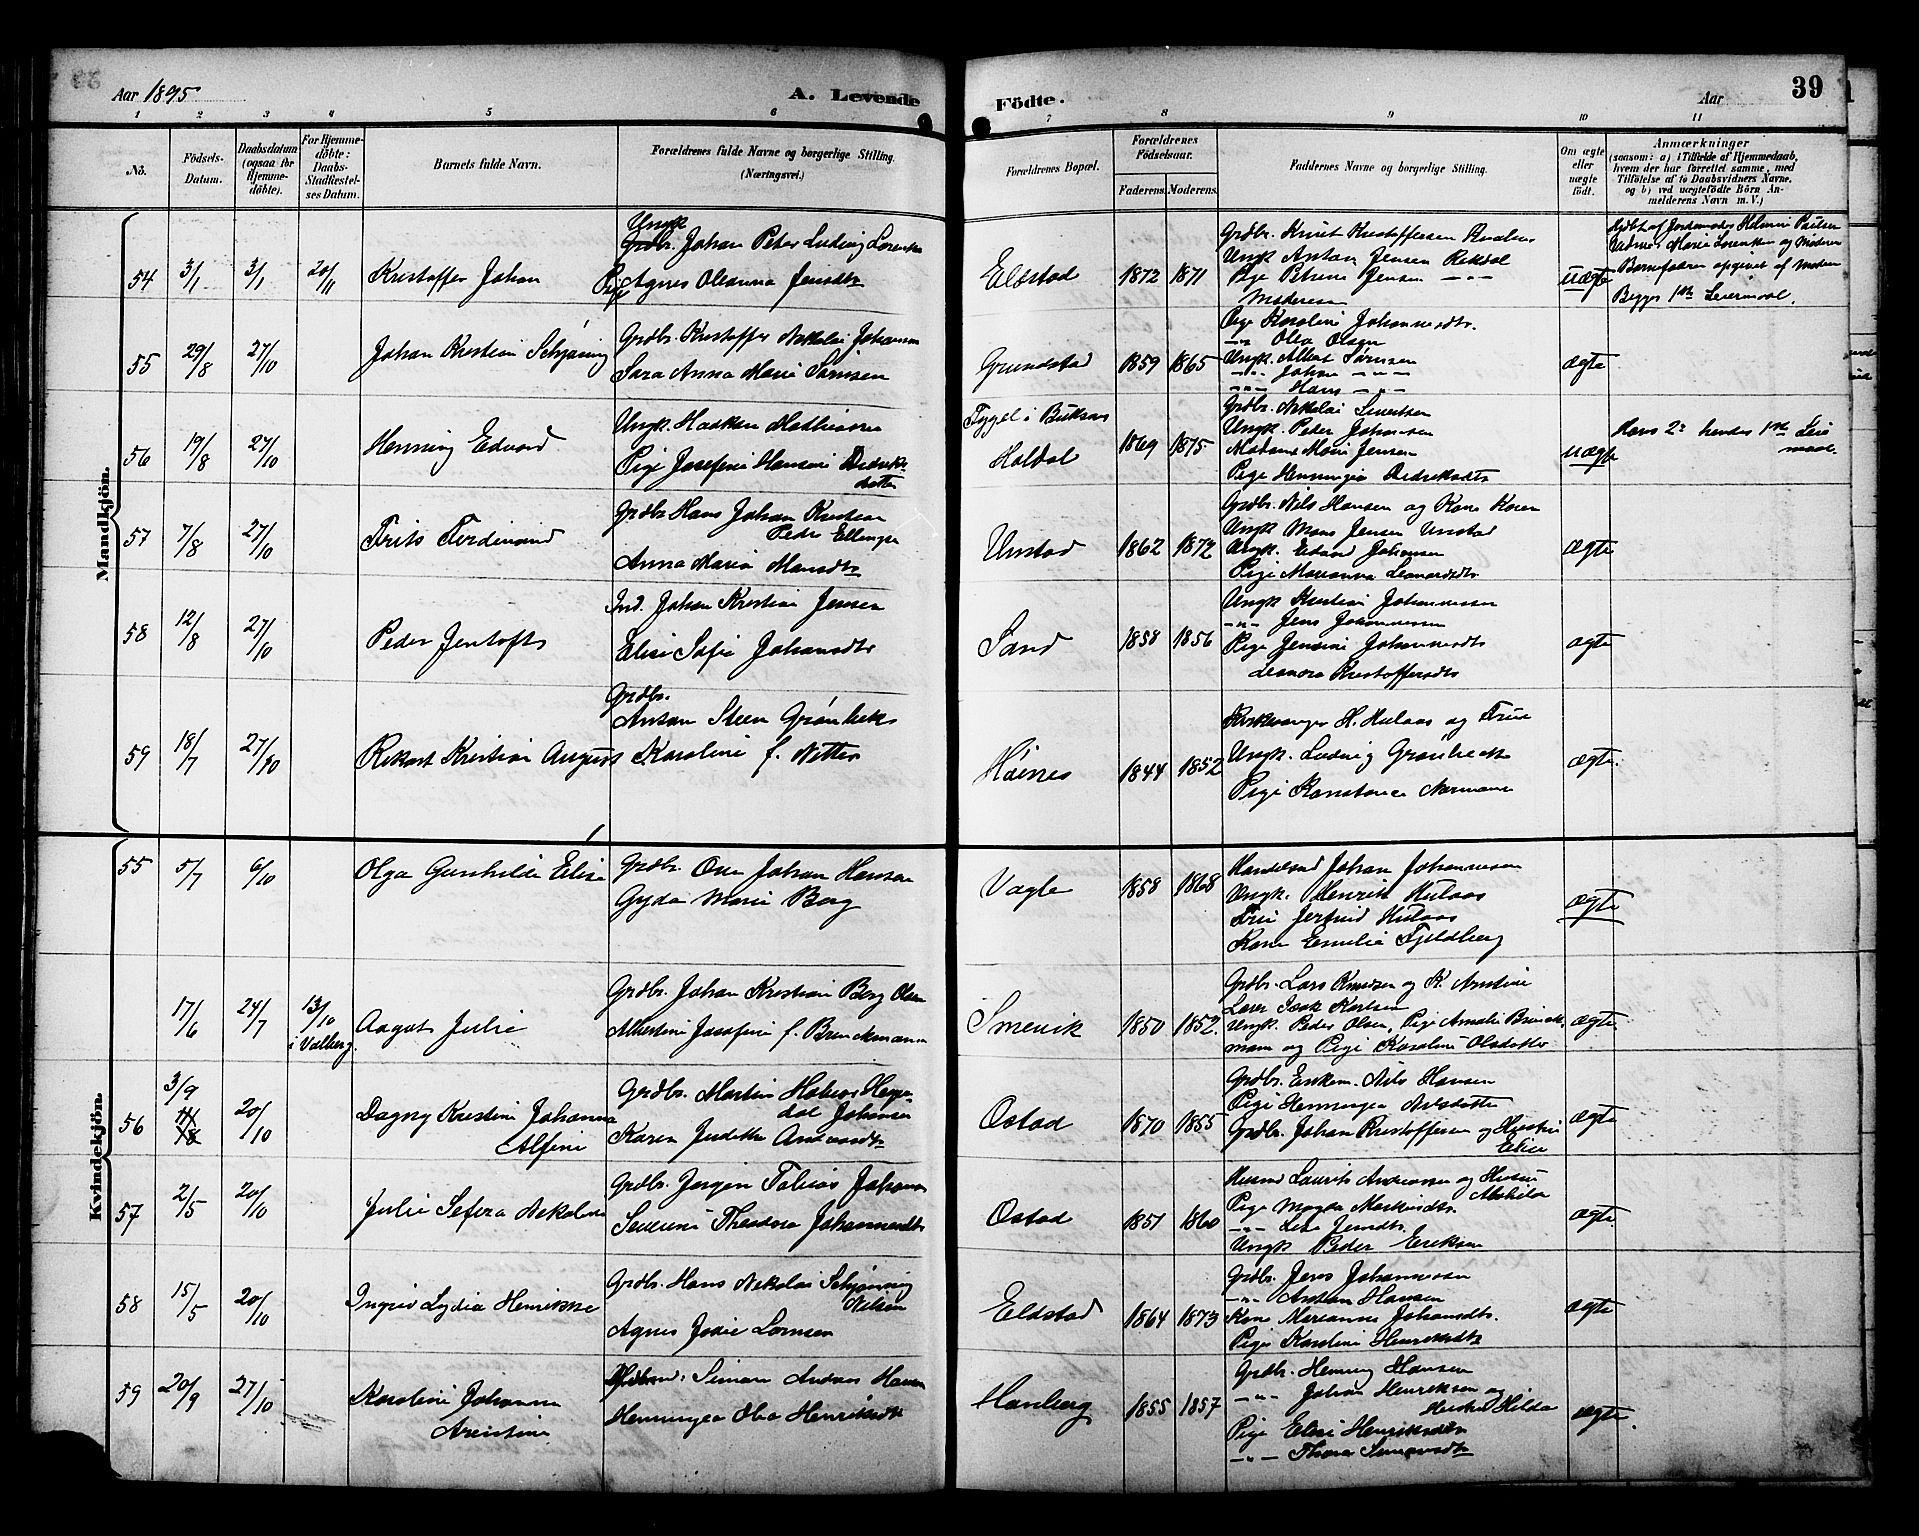 Aar 1895
A. Levende Födte.
Aar
39
1 2 3 4 5 6 7 8 9 10 11
No.
Födsels-Datum.
Daabsdatum (ogsaa for Hjemmedöbte).
For Hjemmedöbte: Daabs-Stadfæstelses Datum.
Barnets fulde Navn.
Forældrenes fulde Navne og borgerlige Stilling. (Næringsvei.)
Forældrenes Bopæl.
Forældrenes Födselsaar.
Faderens. Moderens.
Faddernes Navne og borgerlige Stilling.
Om ægte eller uægte födt.
Anmærkninger
(saasom: a) i Tilfælde af Hjemmedaab,
hvem der har forrettet samme, med
Tilföielse af to Daabsvidners Navne,
og b) ved uægtefödte Börn Anmelderens Navn m. V.)
Mandkjön.
54 3/1 3/1 20/11 Kristoffer Johan
Ungk. Johan Peter Ludvig Lorentsen
Pige Agnes Oleanna Jensdtr
Eldstad 1872 1871
Grdbr. Knut Kristoffersen
Ungk Anton Jensen Rekdal
Pige Petrine Jensen — " —
Moderen
uægte
Hjdbt af Jordemoder Helmine Paulsen
Barnefader opgivet af Moderen
Begges 1ste Leiermaal.
55 29/8 27/10 Johan Kristian Schjöning
Grdbr. Kristoffer Nikolai Johansen
Sara Anna Marie Sörnsen
Grundstad 1859 1865
Pige Karoline Johannesdtr.
— " — Olea Olsen
Ungk. Albert Sörnsen
— " — Johan — " —
— " — Hans — " —
ægte
56 19/8 27/10 Henning Edvard
Ungk. Haakon Mathisen
Pige Josefine Hansine Didriksdatter
Tygel i Buksnes
Holdal 1869 1875
Grdbr. Nikolai
Ungk. Peder Johansen
Madame Marie Jensen
Pige Henningia Didriksdtr
uægte
Hans 2; hendes 1ste Leiermaal.
57 7/8 27/10 Frits Ferdinand
Grdbr. Hans Johan Kristian
Peder Ellingsen
Anna Maria Mansdtr
Unstad 1862 1872
Grdbr. Nils Hansen og Kone Karen
Ungk Mons Jensen Unstad
Ungk. Edvard Johansen
Pige Marianna Leonardsdtr
ægte
58 12/8 27/10 Peder Jentoft
Ind. Johan Kristian Jensen
Elise Sofie Johansdtr
Sand 1858 1856
Ungk Kristian Johannessen
— " — Jens Johannessen
Pige Jensine Johannesdtr
Leanora Kristoffersdtr
ægte
59 18/7 27/10 Rikart Kristian August
Grdbr.
Anton Steen Grönbek
Karoline f. Nitter
Höines 1844 1852
Kirkesanger H. Hulaas og Frue
Ungk. Ludvig Grönbeck
Pige Konstance Normann
ægte.
Kvindekjön.
55 5/7 6/10 Olga Gunhilde Elise
Grdbr. Ove Johan Hansen
Gyda Marie Berg
Vagle 1858 1868
Handelsmd Johan Johannesen
Ungk. Henrik Hulaas
Frue Hulaas
Kone Emilie Fjeldberg
ægte
17/6 24/7 13/10 i Valberg Aagot Julie
Grdbr. Johan Kristian Berg Olsen
Albertine Josefine f. Brinckmann
Smevik 1850 1852.
Grdbr. Lars Knudsen og K.
Lærer Isak Karlsen
Ungk. Peder Olsen, Pige Amalie Brinckmann og Pige Karoline Olsdatter
ægte.
56 3/9 20/10 Dagny Kristine Johanna
Alfine
Grdbr. Martin Johansen
Karen Judithe Andreasdtr
Ostad 1870 1855
Grdbr. Enkem. Nils Hansen
Pige Henningea Nilsdatter
Grdbr. Johan Kristoffersen og Hustru
Elise
ægte
57 2/5 20/10 Julie Sefira Nikoline
Grdbr. Jörgen Tobias Johansen
Severine Theodora Johannesdtr
Ostad 1851 1860
Husmd Laurits Andreassen og Hustru
Mathilda
Pige Magda Martinsdtr.
— " — Lise Jensdtr.
Ungk Peder Eriksen
ægte.
58 15/5 20/10 Ingrid Lydia Henrikke
Grdbr. Hans Nikolai Schjönning
Nilsen
Agnes Jodie Lornsen
Eldstad 1864 1873
Grdbr. Jens Johannesen
— " — Anton Hansen
Kone Marianne Johansdtr.
Pige Karoline Henriksdtr
ægte
59 20/9 27/10 Karoline Johanna
Simon Andreas Hansen
Henningea Olea Henriksdtr
Hanberg 1855 1857
Grdbr. Henning Hansen
— " — Johan Henriksen og
Hustru Hilda
Pige Elise Henriksdtr
— " — Thora Simonsdtr
ægte.